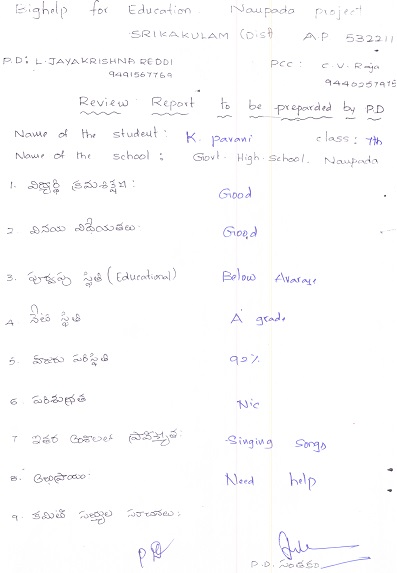 Bighelp for Education. Naupada project
SRIKAKULAM (Dist) A.P 532211
P.D: L. JAYAKRISHNA REDDI PCC: C.V. Raja
9491567769 9440257915
Review Report to be preparded by P.D
Name of the student: K. Pavani class: 7th
Name of the school: Govt. High. School, Naupada
1. విద్యార్థి క్రమశిక్షణ: Good
2. వినయ విధేయతలు: Good
3. పూర్వపు స్థితి (Educational) Below Avarage
4 నేటి స్థితి A grade
5. హాజరు పరిస్థితి 92%
6. పరిశుభ్రత Nic
7 ఇతర అంశాలలో ప్రావీణ్యత: Singing songs
8. అభిప్రాయం: Need help
9. కమిటీ సభ్యుల సూచనలు:
P.D. సంతకం